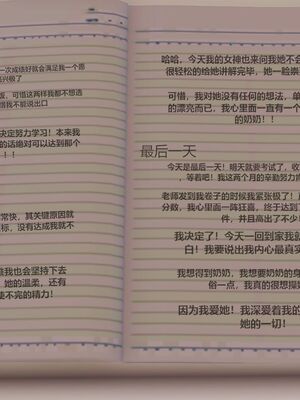 一次成绩好就会满足我一个愿
兴极了
饭，可惜这两样我都不想选
惜我不能说出口
决定努力学习！本来我
的话绝对可以达到那个
！！
常快，其关键原因就
标，没有达成我就不
我也会坚持下去
她的温柔，还有
使不完的精力！
哈哈，今天我的女神也来问我她不会
很轻松的给她讲解完毕，她一脸崇
可惜，我对她没有任何的想法，单
的漂亮而已，我心里面一直有一个
的奶奶！！
最后一天
今天是最后一天！明天就要考试了，收
，等着吧！我这两个月的辛勤努力
老师发到我卷子的时候我紧张极了！
分数，我心里面一阵狂喜，终于达到了
件，并且高出了不少
我决定了！今天一回到家我就
白！我要说出我内心最真实
我想得到奶奶，我想要奶奶的身
俗一点，我真的很想操
因为我爱她！我深爱着
她的一切！